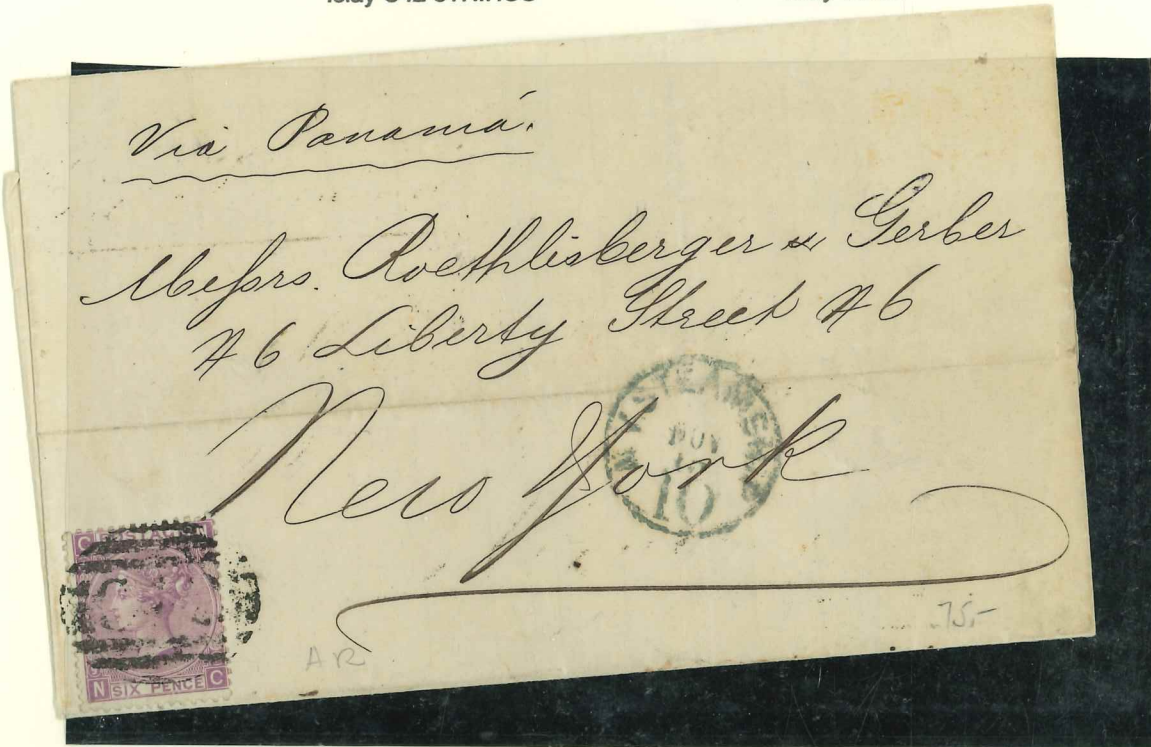 Via Panamá.
Messrs. Roethlisberger & Gerber
46 Liberty Street 46
New York
N Y STEAMSHIP
NOV
10
C POSTAGE N
N SIX PENCE C
AR
75.-
Islay